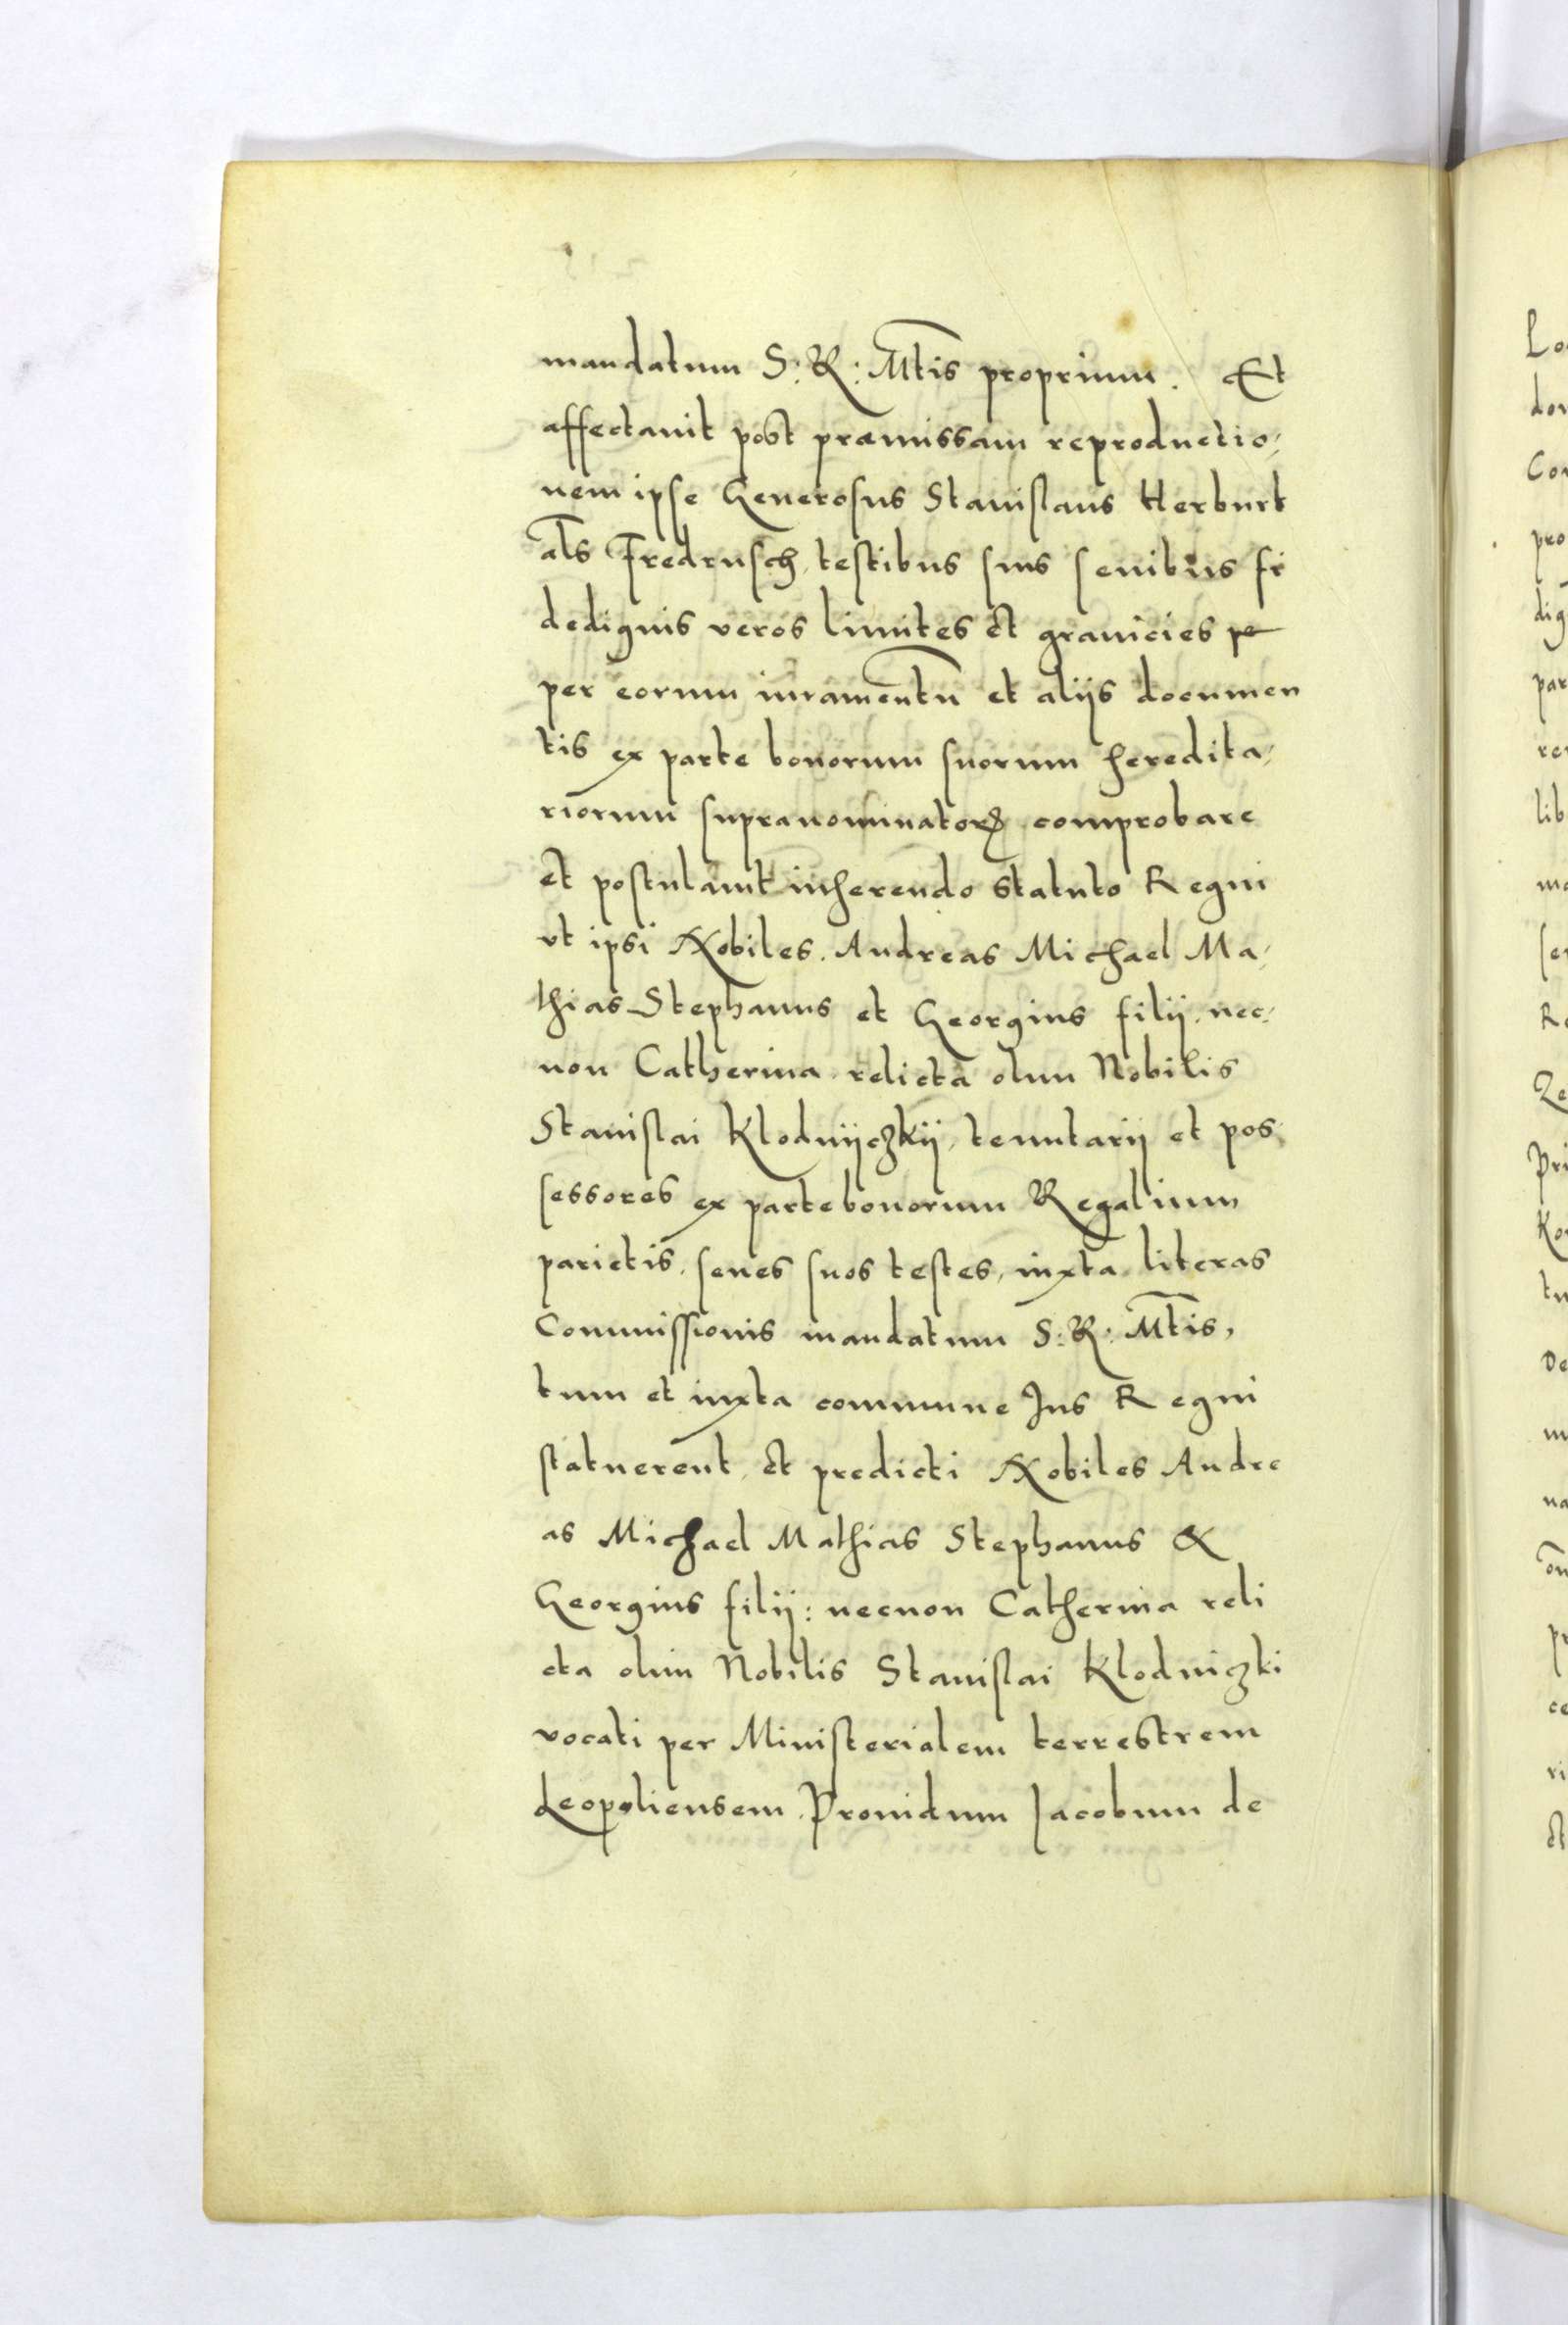 mandatum S: R: Mtis proprium. Et
affectauit post præmissam reproductio,
nem ipse Generosus Stanislaus Herburt
als Fredrusch, testibus suis senibus fi
dedignis veros limites et granicies pe
per eorum iuramentu et aliis documen
tis ex parte bonorum suorum heredita,
riorum supranominator comprobare
et postulauit inherendo statuto Regni
vt ipsi Nobiles. Andreas Michael Ma,
thias Stephanus et Georgius filij. nec,
non Catherina relicta olim Nobilis
Stanislai Klodnijczkij, tenutarij et pos,
sessores ex parte bonorum Regalium
parietis, senes suos testes, iuxta literas
Commissionis mandatum S: R: Mtis,
tum et iuxta commune Jus Regni
statuerent, et predicti Nobiles Andre
as Michael Mathias Stephanus &
Georgius filij: necnon Catherina reli
cta olim Nobilis Stanislai Klodniczki
vocati per Ministerialem terrestrem
Leopoliensem. Prouidum Jacobum de